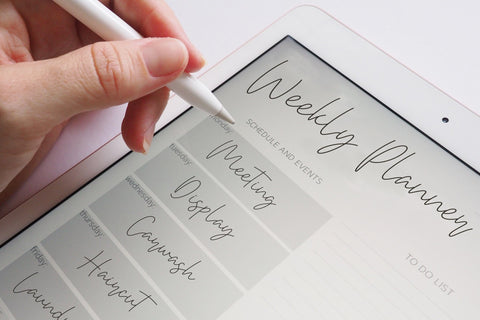 Weekly Planner
SCHEDULE AND EVENTS
monday
Meeting
tuesday
Display
wednesday
Carwash
thursday
Haircut
friday
TO DO LIST